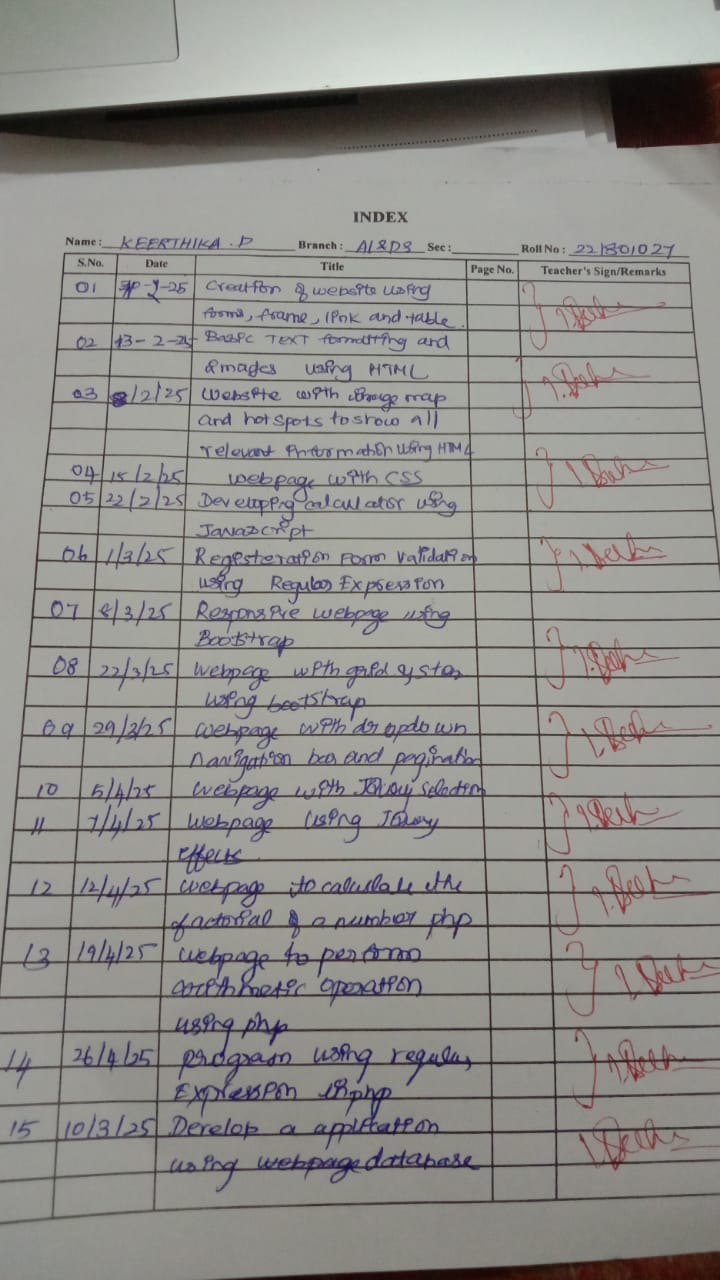 INDEX
Name: KEERTHIKA .P Branch: AI&DS Sec: Roll No: 221801027
S.No. Date Title Page No. Teacher's Sign/Remarks
01 -25 Creation of website using
forms, frame, link and table.
02 13-2-25 Basic TEXT formatting and
images using HTML
03 8/2/25 Website with image map
and hotspots to show all
relevant information using HTML
04 15/2/25 webpage with CSS
05 22/2/25 Developing calculator using
JavaScript
06 1/3/25 Regesteration Form validation
using Regular Expression
07 8/3/25 Responsive webpage using
Bootstrap
08 22/3/25 webpage with grid system
using bootstrap
09 29/3/25 webpage with dropdown
navigation bar and pagination
10 5/4/25 webpage with JQuery Selection
11 7/4/25 webpage using JQuery
effects.
12 12/4/25 webpage to calculate the
factorial of a number php
13 19/4/25 webpage to perform
arithmetic operation
using php
14 26/4/25 program using regular
Expression in php
15 10/3/25 Develop a application
using webpage database